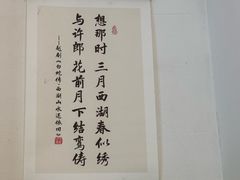 想那时三月西湖春似绣
与许郎花前月下结鸾俦
——越剧《白蛇传·西湖山水还依旧》